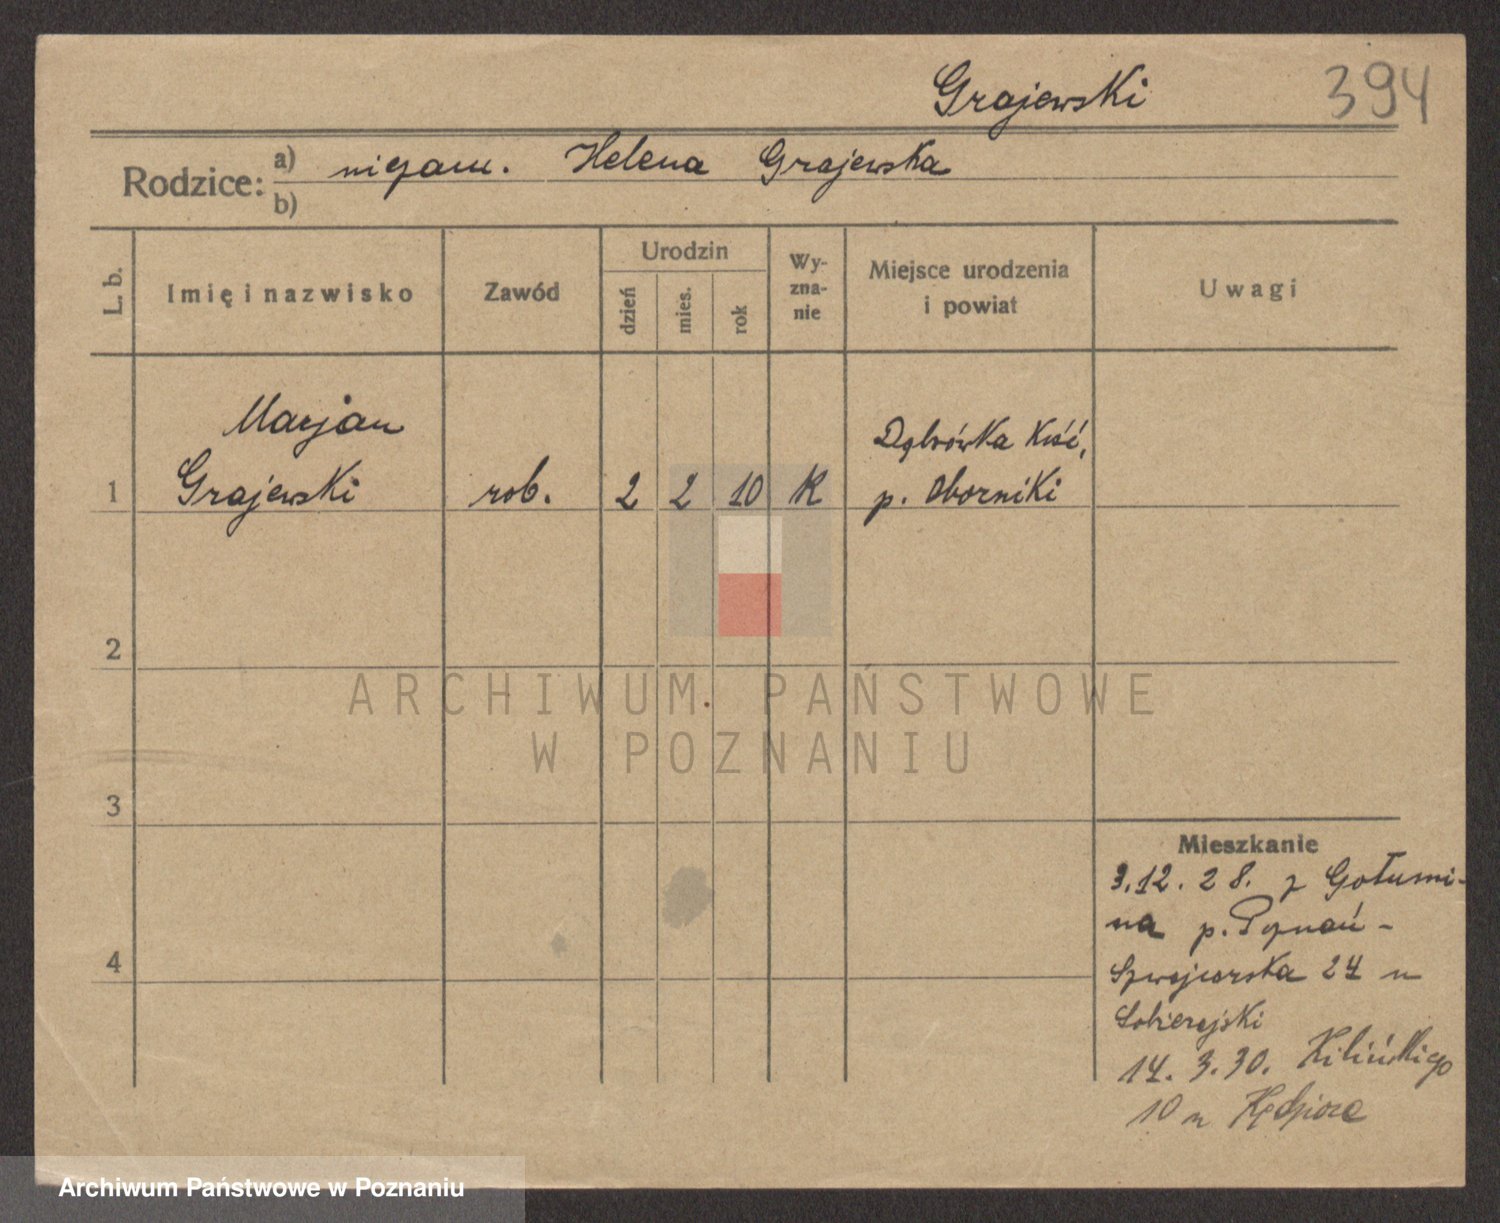 Grajewski 394
Rodzice: a) niezam. Helena Grajewska
b)
L. b. Imię i nazwisko Zawód Urodzin dzień mies. rok Wy-zna-nie Miejsce urodzenia i powiat Uwagi
Marjan
Dąbrówka Kość,
1 Grajewski rob. 2 2 10 K p. Oborniki
2
ARCHIWUM PAŃSTWOWE
W POZNANIU
3
Mieszkanie
3.12.28. z Gołumi-
na p. Poznań -
4
Szwajcarska 24 u
Sobierajski
14.3.30. Kilińskiego
10 u
Archiwum Państwowe w Poznaniu